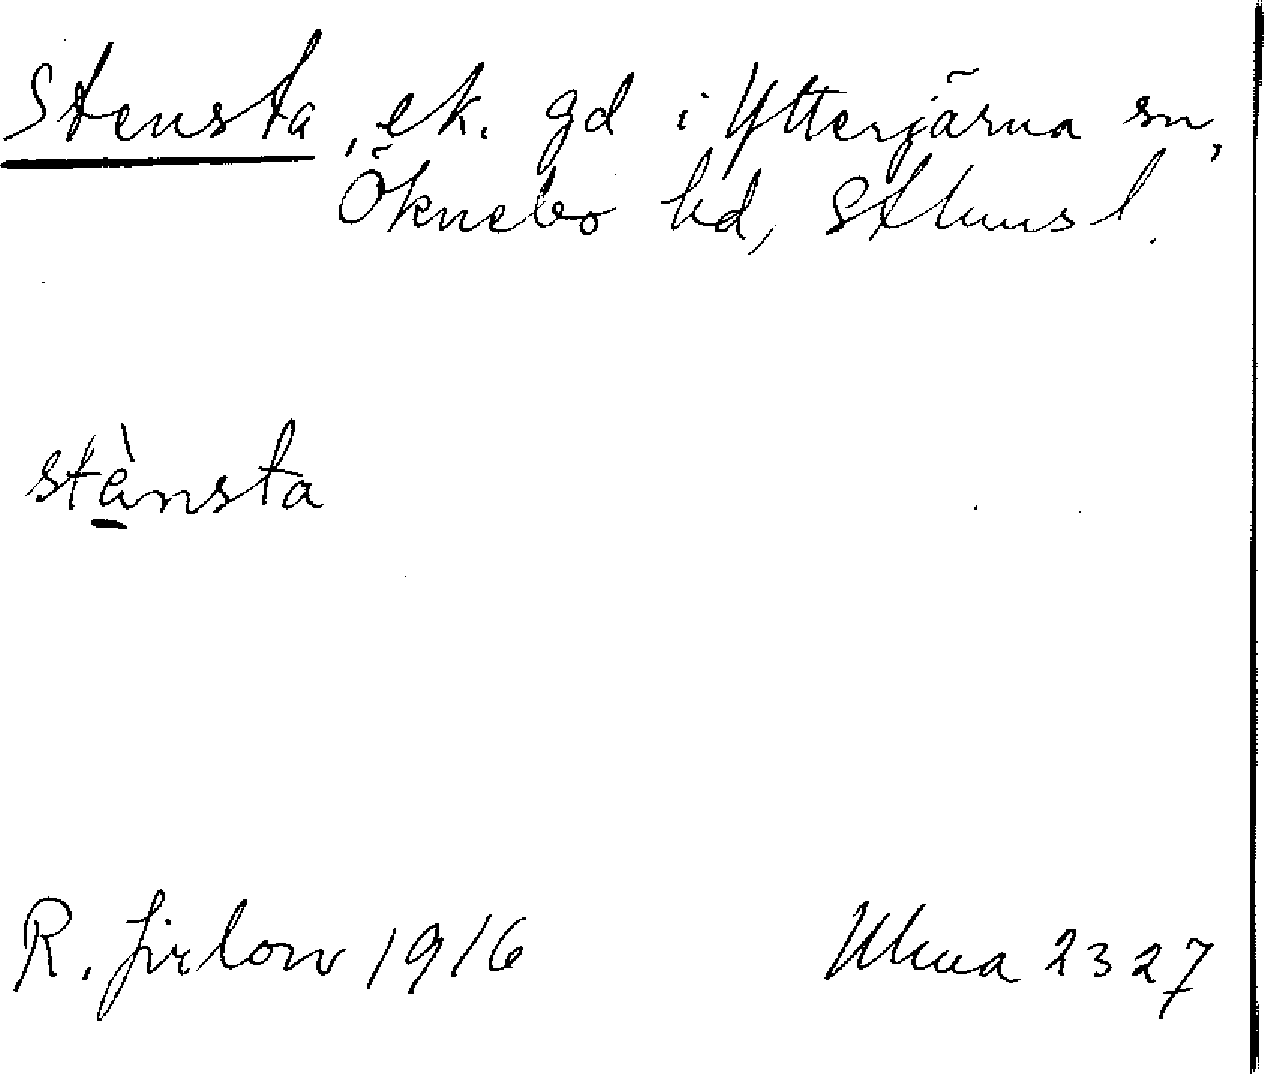 Stensta, ek. gd i Ytterjärna sn,
Öknebo hd, Sthms l.
stènsta
R. Jirlow 1916
Ulma 2327